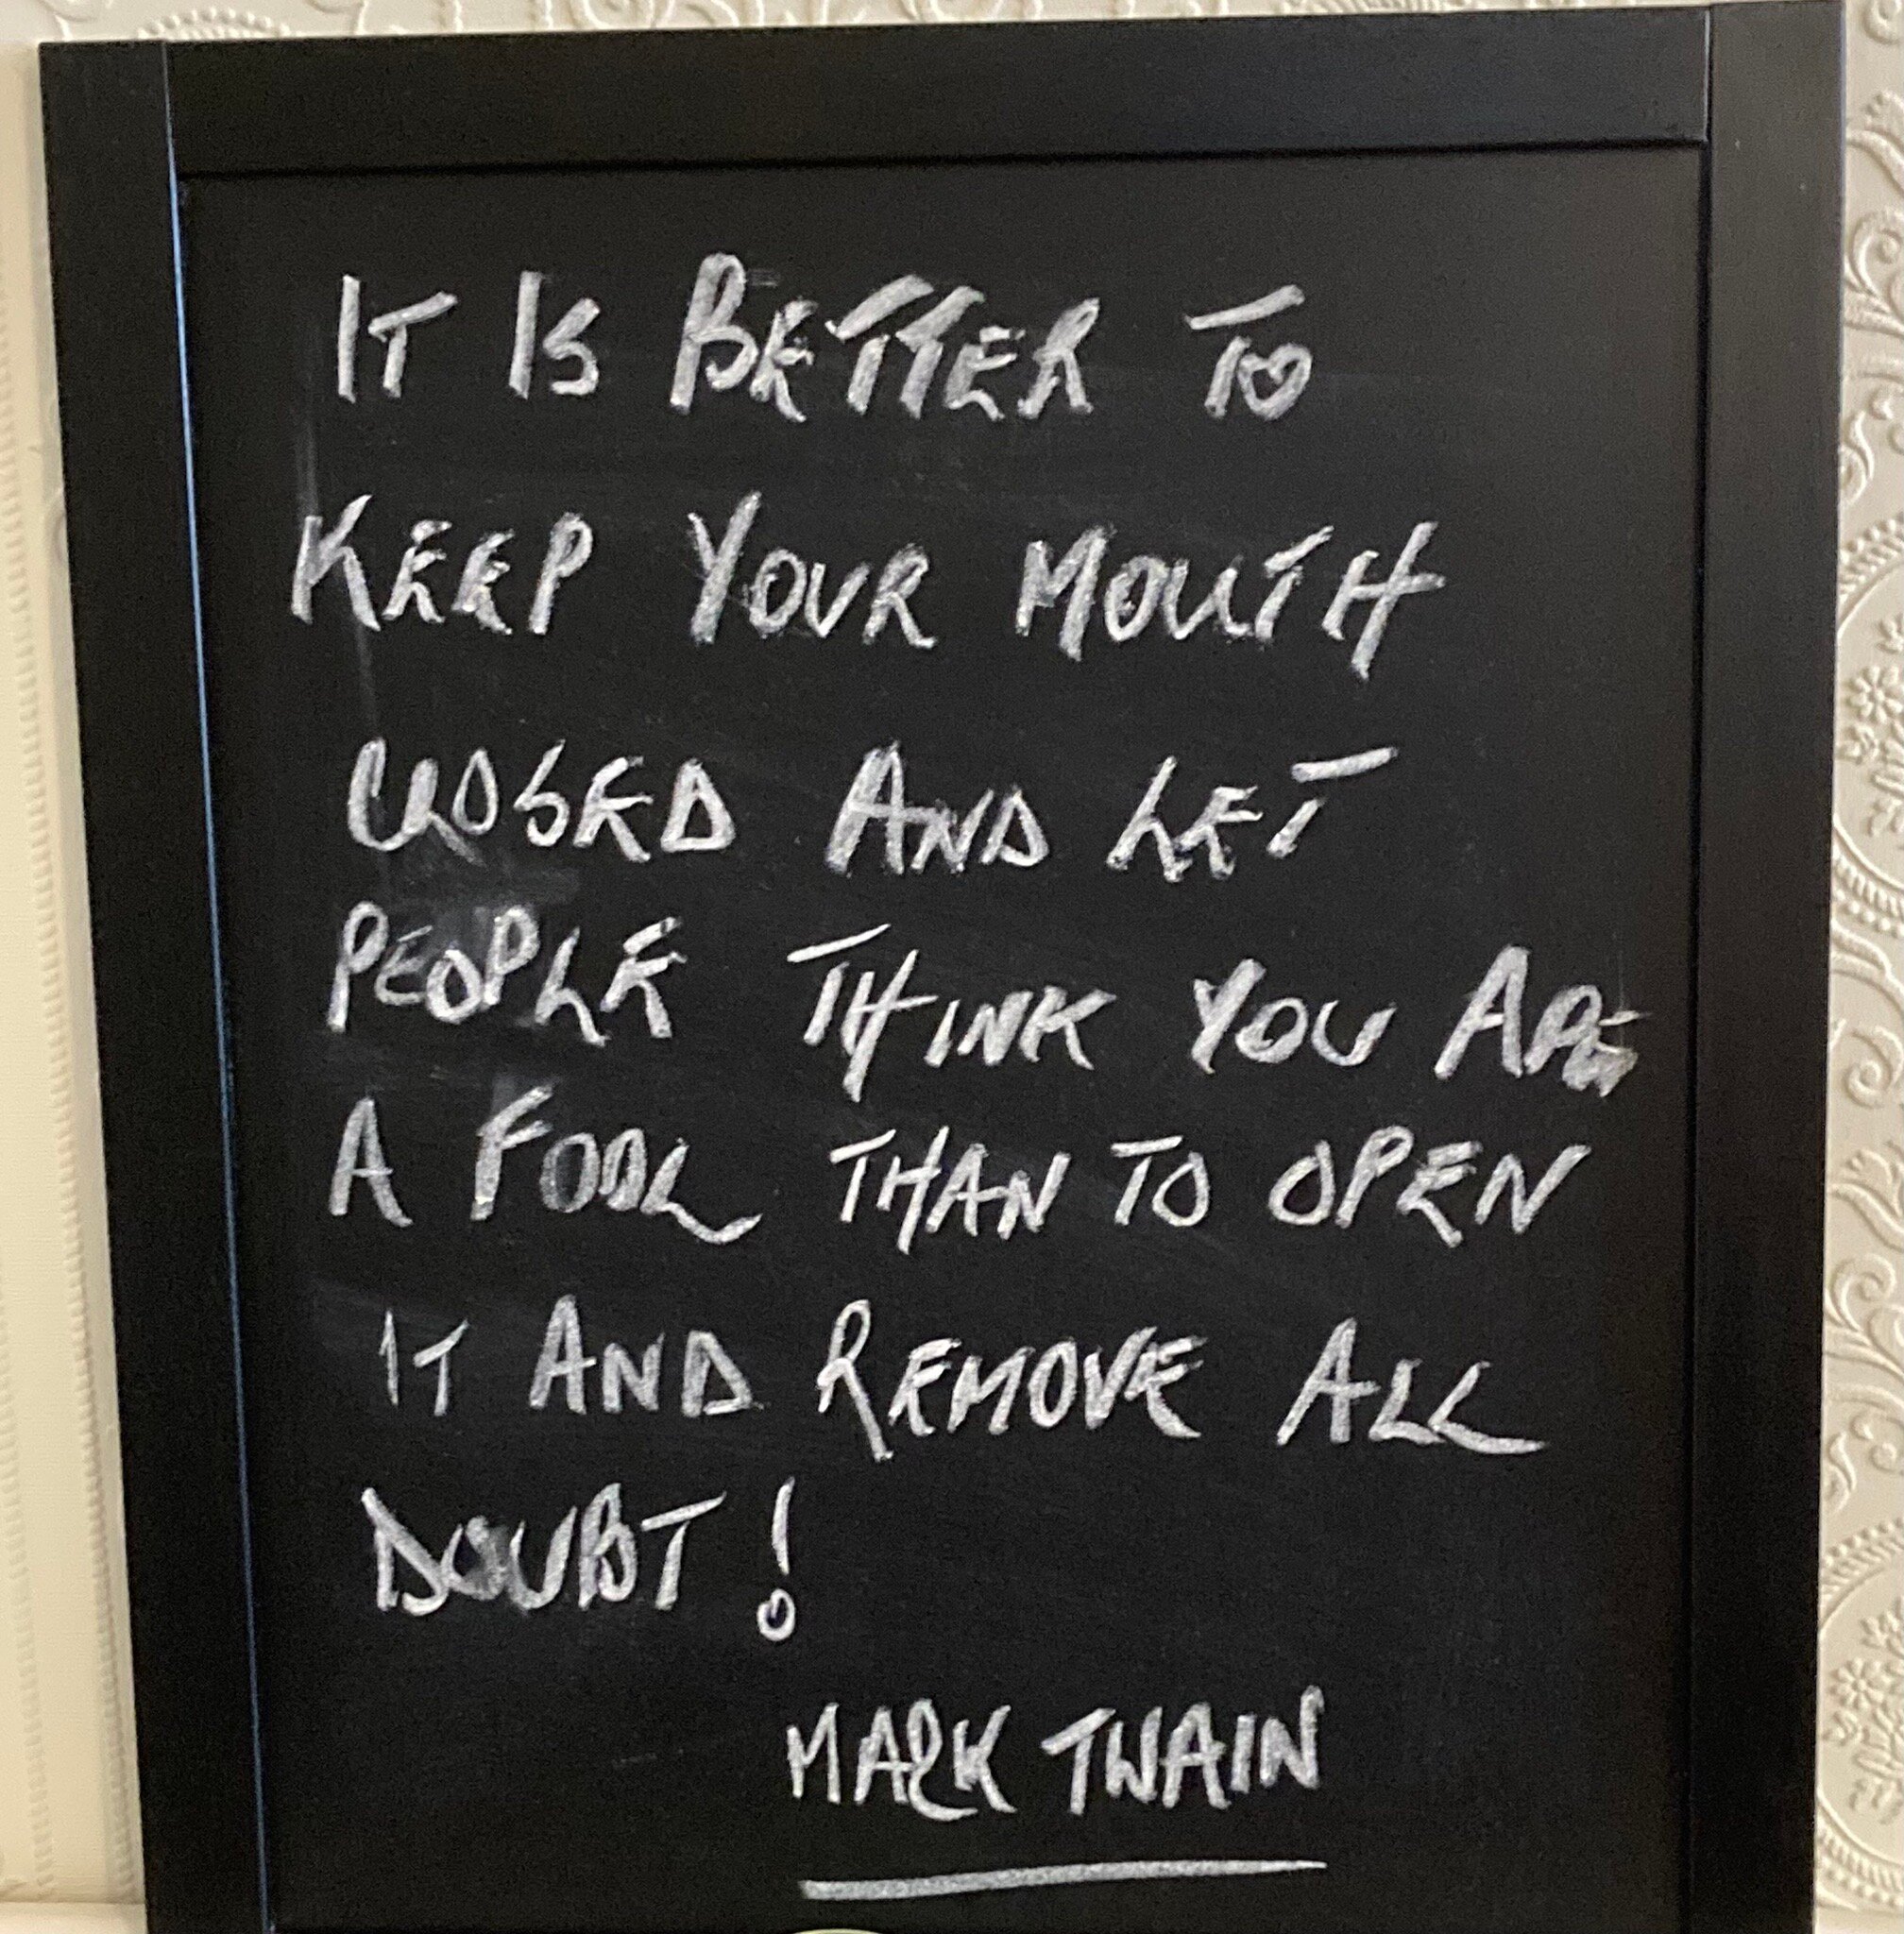 IT IS BETTER TO
KEEP YOUR MOUTH
CLOSED AND LET
PEOPLE THINK YOU ARE
A FOOL THAN TO OPEN
IT AND REMOVE ALL
DOUBT!
MARK TWAIN